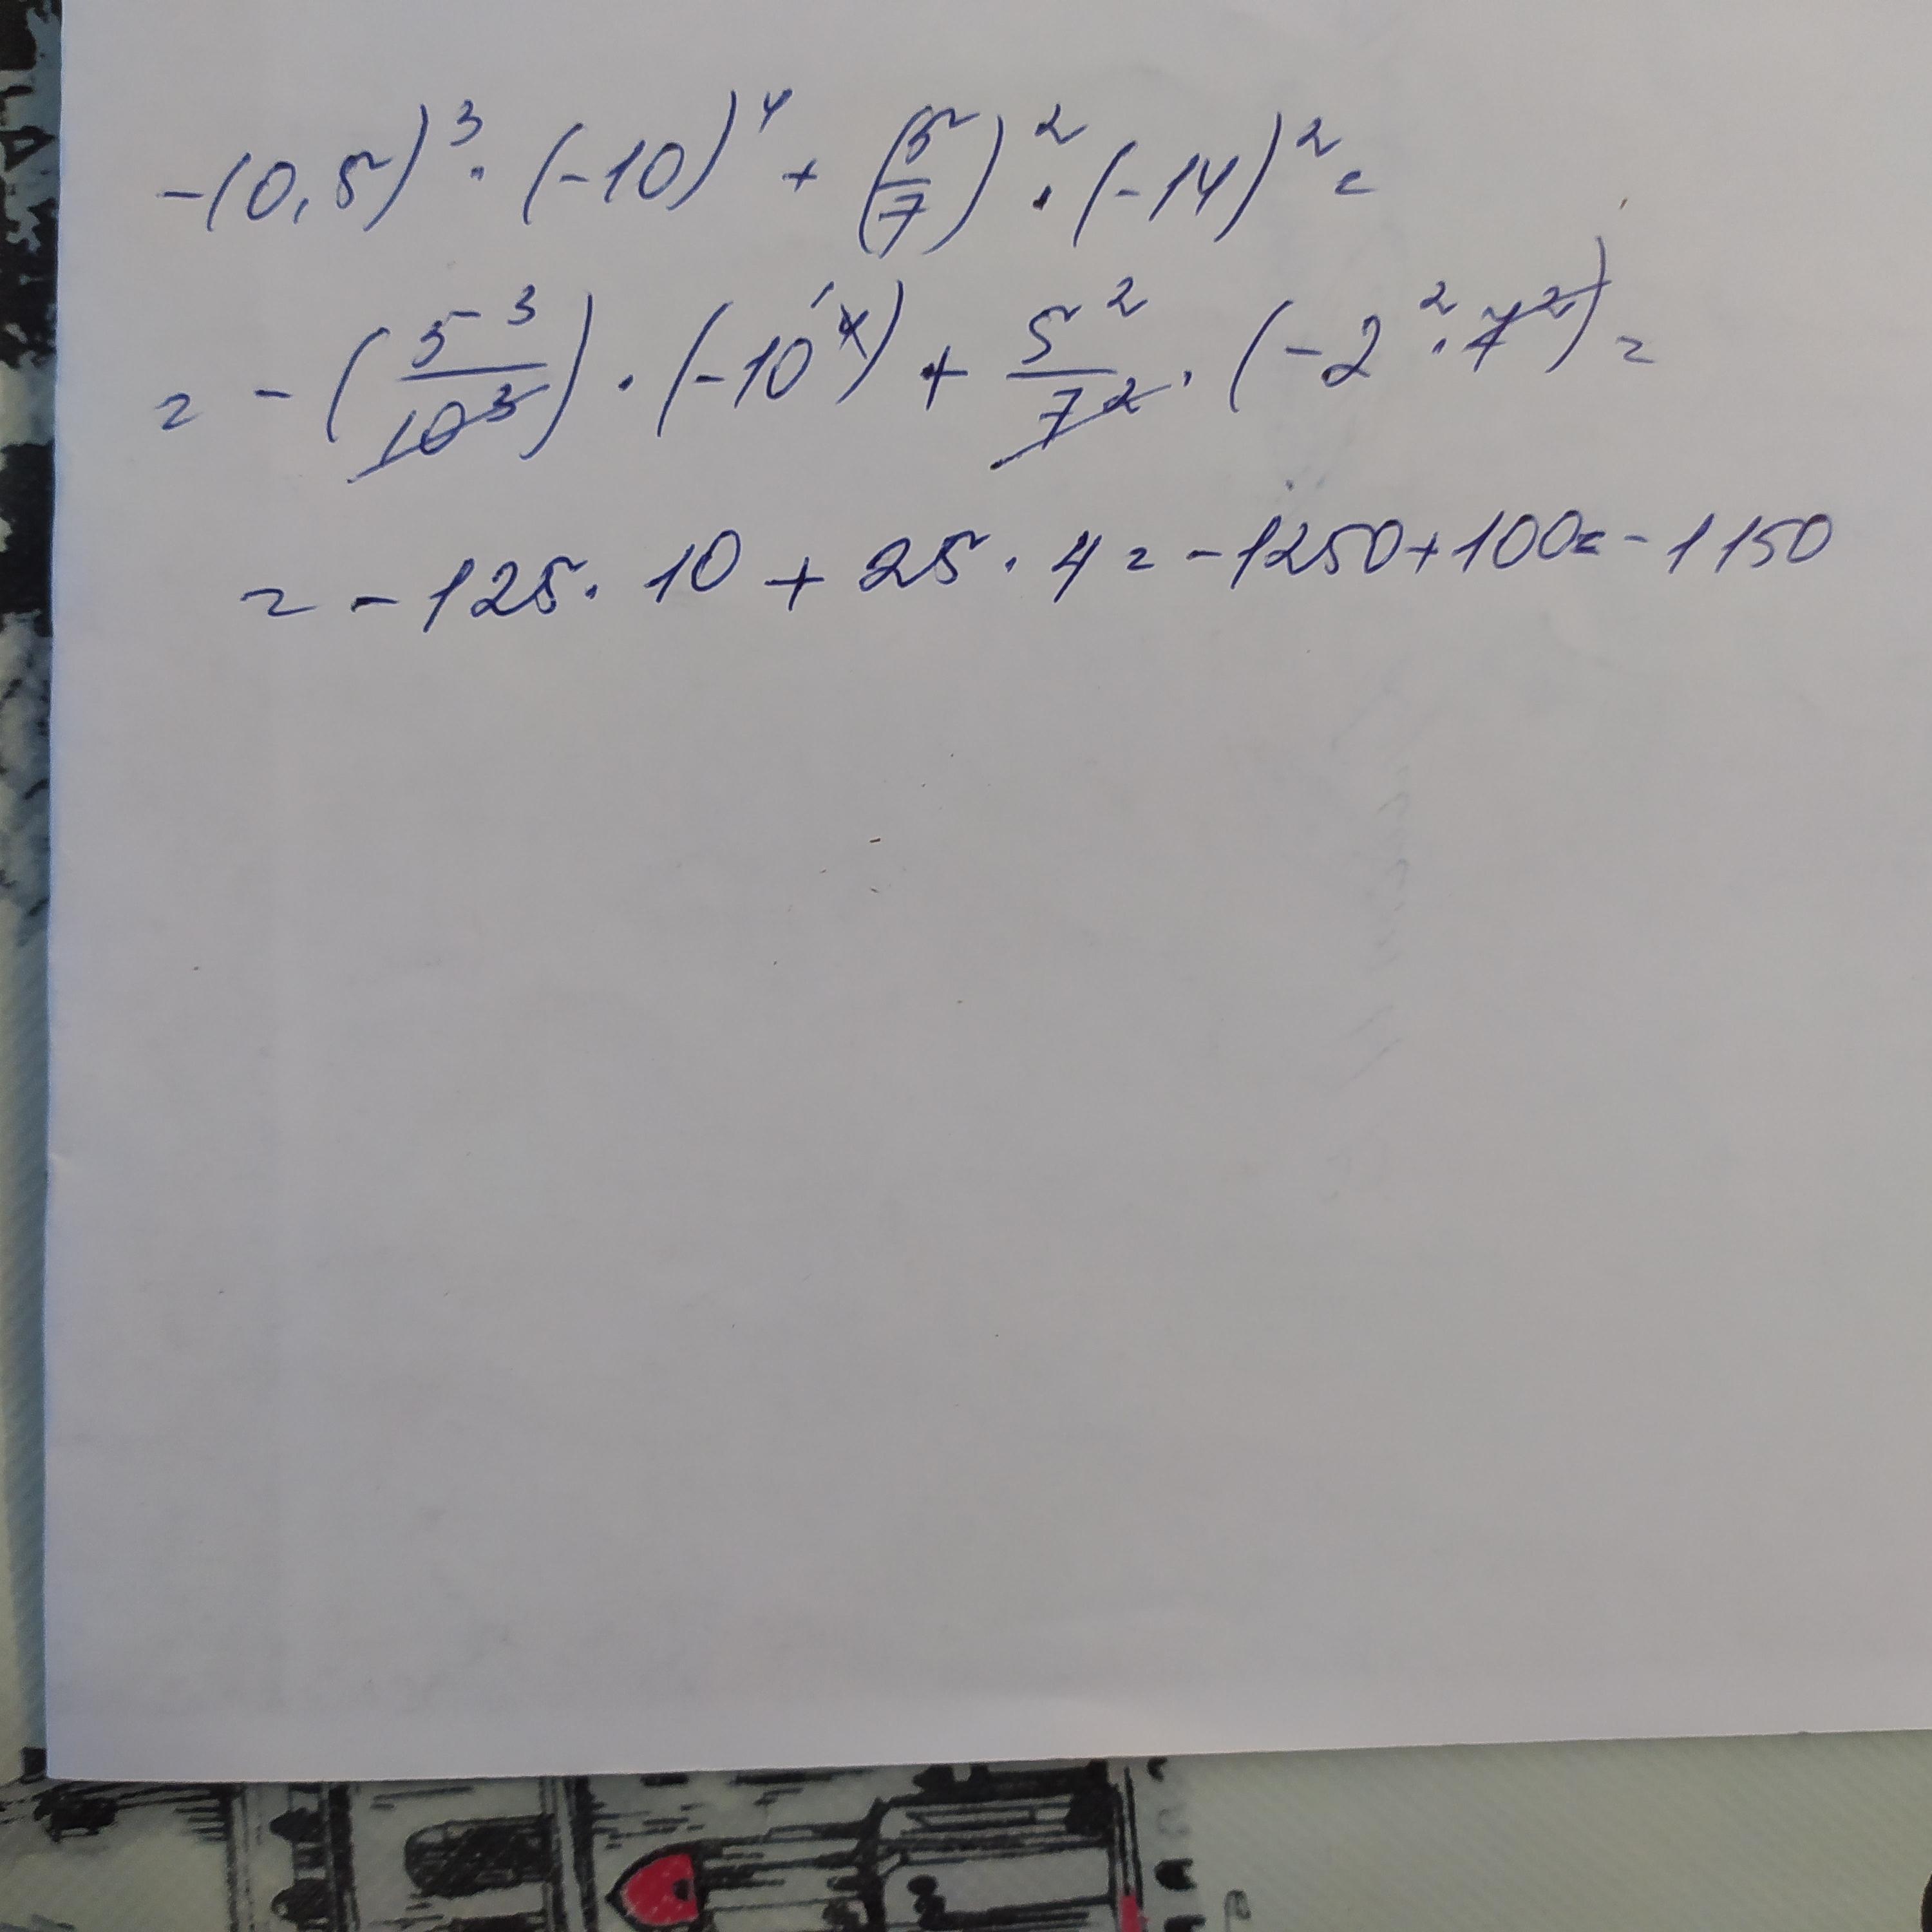 -(0,5)³·(-10)⁴+(5/7)²·(-14)²=
=-(5³/10³)·(-10⁴)+5²/7²·(-2²·7²)=
=-125·10+25·4=-1250+100=-1150